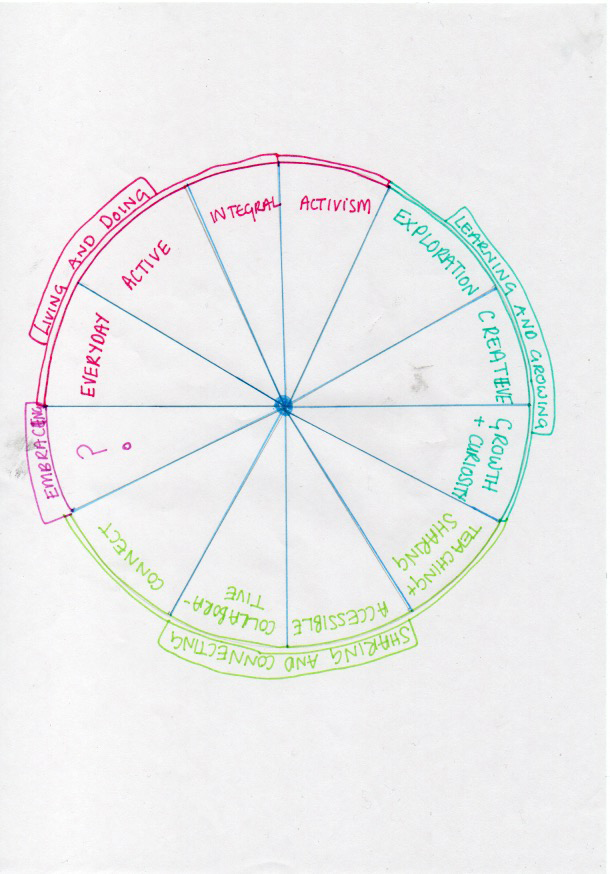 LIVING AND DOING
EVERYDAY
ACTIVE
INTEGRAL
ACTIVISM
LEARNING AND GROWING
EXPLORATION
CREATIVE
GROWTH
+ CURIOSITY
SHARING AND CONNECTING
TEACHING+
SHARING
ACCESSIBLE
COLLABORA-
TIVE
CONNECT
EMBRACING
?